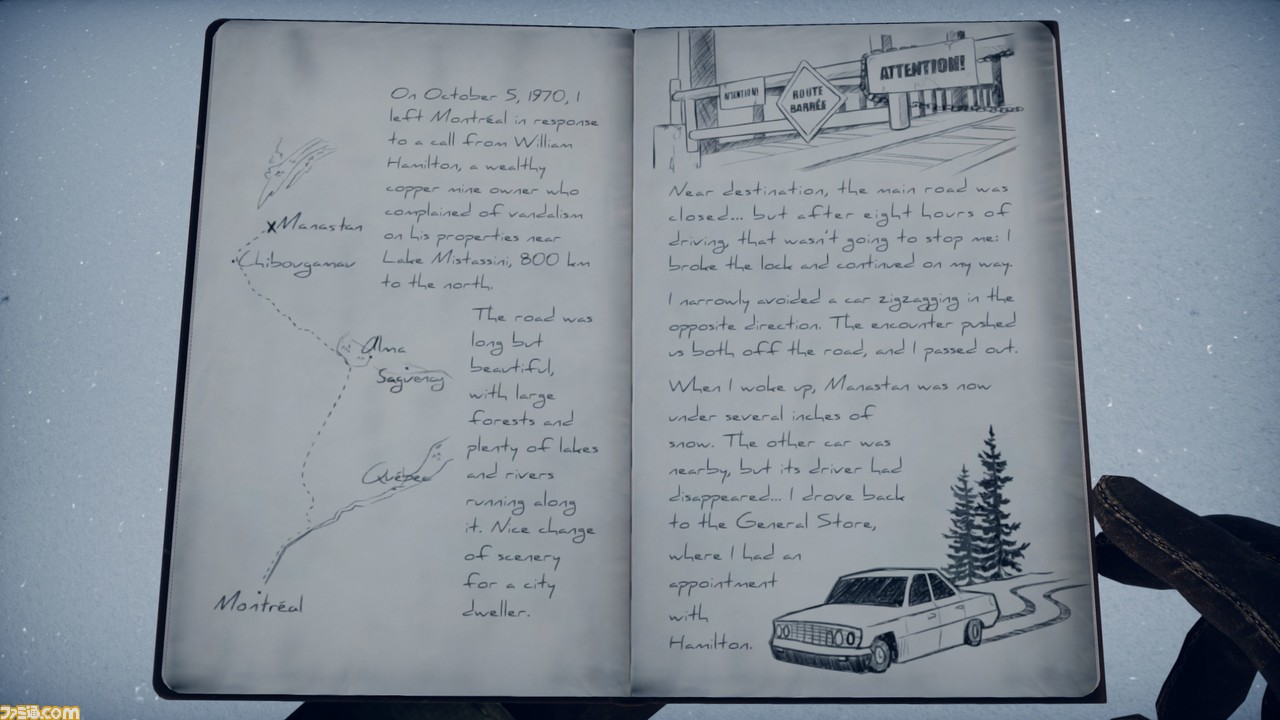 On October 5, 1970, I
left Montréal in response
to a call from William
Hamilton, a wealthy
copper mine owner who
complained of vandalism
on his properties near
Lake Mistassini, 800 km
to the north.
The road was
long but
beautiful,
with large
forests and
plenty of lakes
and rivers
running along
it. Nice change
of scenery
for a city
dweller.
Manastan
Chibougamau
Alma
Saguenay
Québec
Montréal
ATTENTION!
ROUTE
BARRÉE
ATTENTION!
Near destination, the main road was
closed... but after eight hours of
driving, that wasn't going to stop me: I
broke the lock and continued on my way.
I narrowly avoided a car zigzagging in the
opposite direction. The encounter pushed
us both off the road, and I passed out.
When I woke up, Manastan was now
under several inches of
snow. The other car was
nearby, but its driver had
disappeared... I drove back
to the General Store,
where I had an
appointment
with
Hamilton.
ファミ通.com